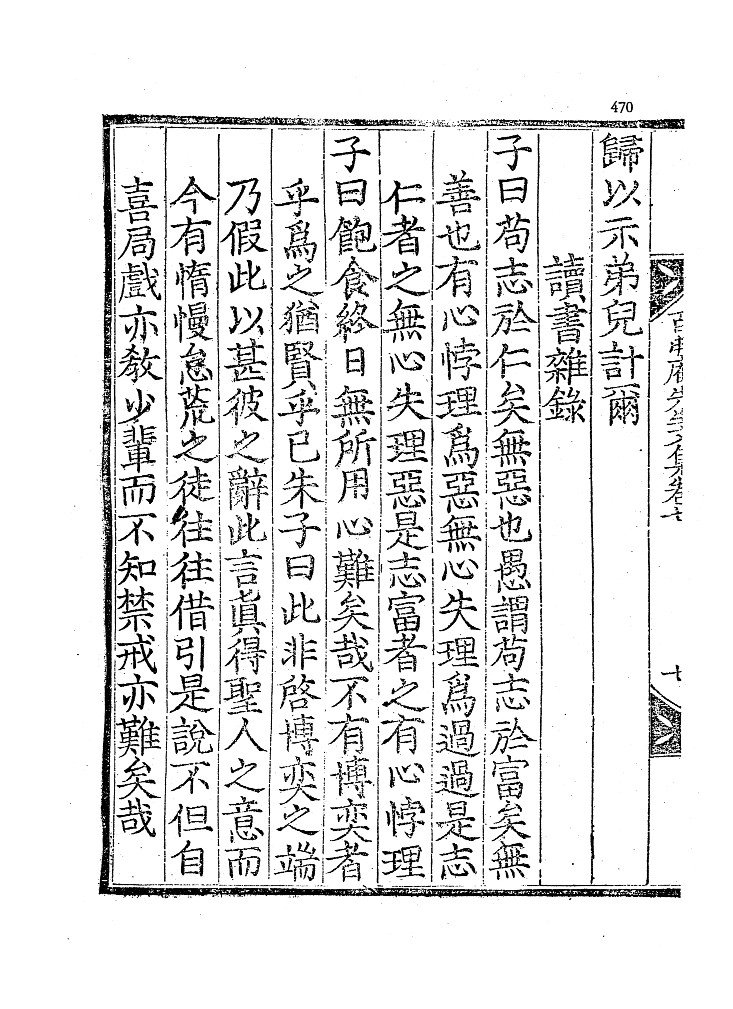 470
歸以示弟兒計爾
讀書雜錄
子曰苟志於仁矣無惡也愚謂苟志於富矣無
善也有心悖理爲惡無心失理爲過過是志
仁者之無心失理惡是志富者之有心悖理
子曰飽食終日無所用心難矣哉不有博奕者
乎爲之猶賢乎已朱子曰此非啓博奕之端
乃假此以甚彼之辭此言眞得聖人之意而
今有惰慢怠荒之徒往往借引是說不但自
喜局戲亦敎少輩而不知禁戒亦難矣哉